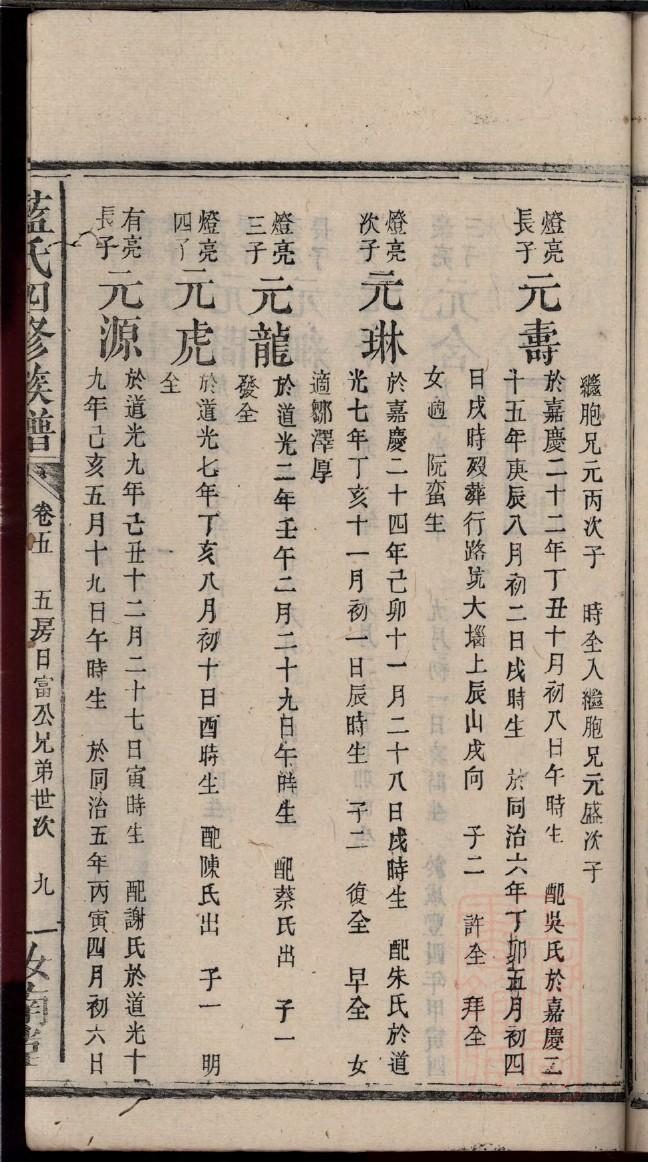 繼胞兄元丙次子 時全入繼胞兄元盛次子
燈亮長子 元壽 於嘉慶二十二年丁丑十月初八日午時生 配吳氏於嘉慶二
十五年庚辰八月初二日戌時生 於同治六年丁卯五月初四
日戌時歿葬行路坑大墈上辰山戌向 子二 許全 拜全
女適 阮蛮生
燈亮次子 元琳 於嘉慶二十四年己卯十一月二十八日戌時生 配朱氏於道
光七年丁亥十一月初一日辰時生 子二 復全 早全 女
適鄒澤厚
燈亮三子 元龍 於道光二年壬午二月二十九日午時生 配蔡氏出 子一
發全
燈亮四子 元虎 於道光七年丁亥八月初十日酉時生 配陳氏出 子一 明
全
有亮長子 元源 於道光九年己丑十二月二十七日寅時生 配謝氏於道光十
九年己亥五月十九日午時生 於同治五年丙寅四月初六日
藍氏四修族譜 卷五 五房日富公兄弟世次 九 汝南堂